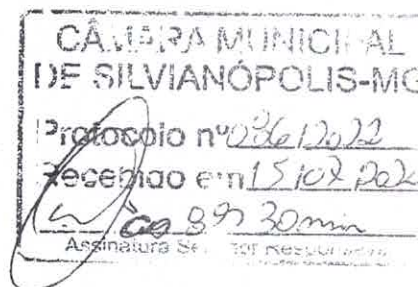 CÂMARA MUNICIPAL
DE SILVIANÓPOLIS-MG
Protocolo nº 036/2022
Recebido em 15/07/202
às 8h 30min
Assinatura Servidor Responsável